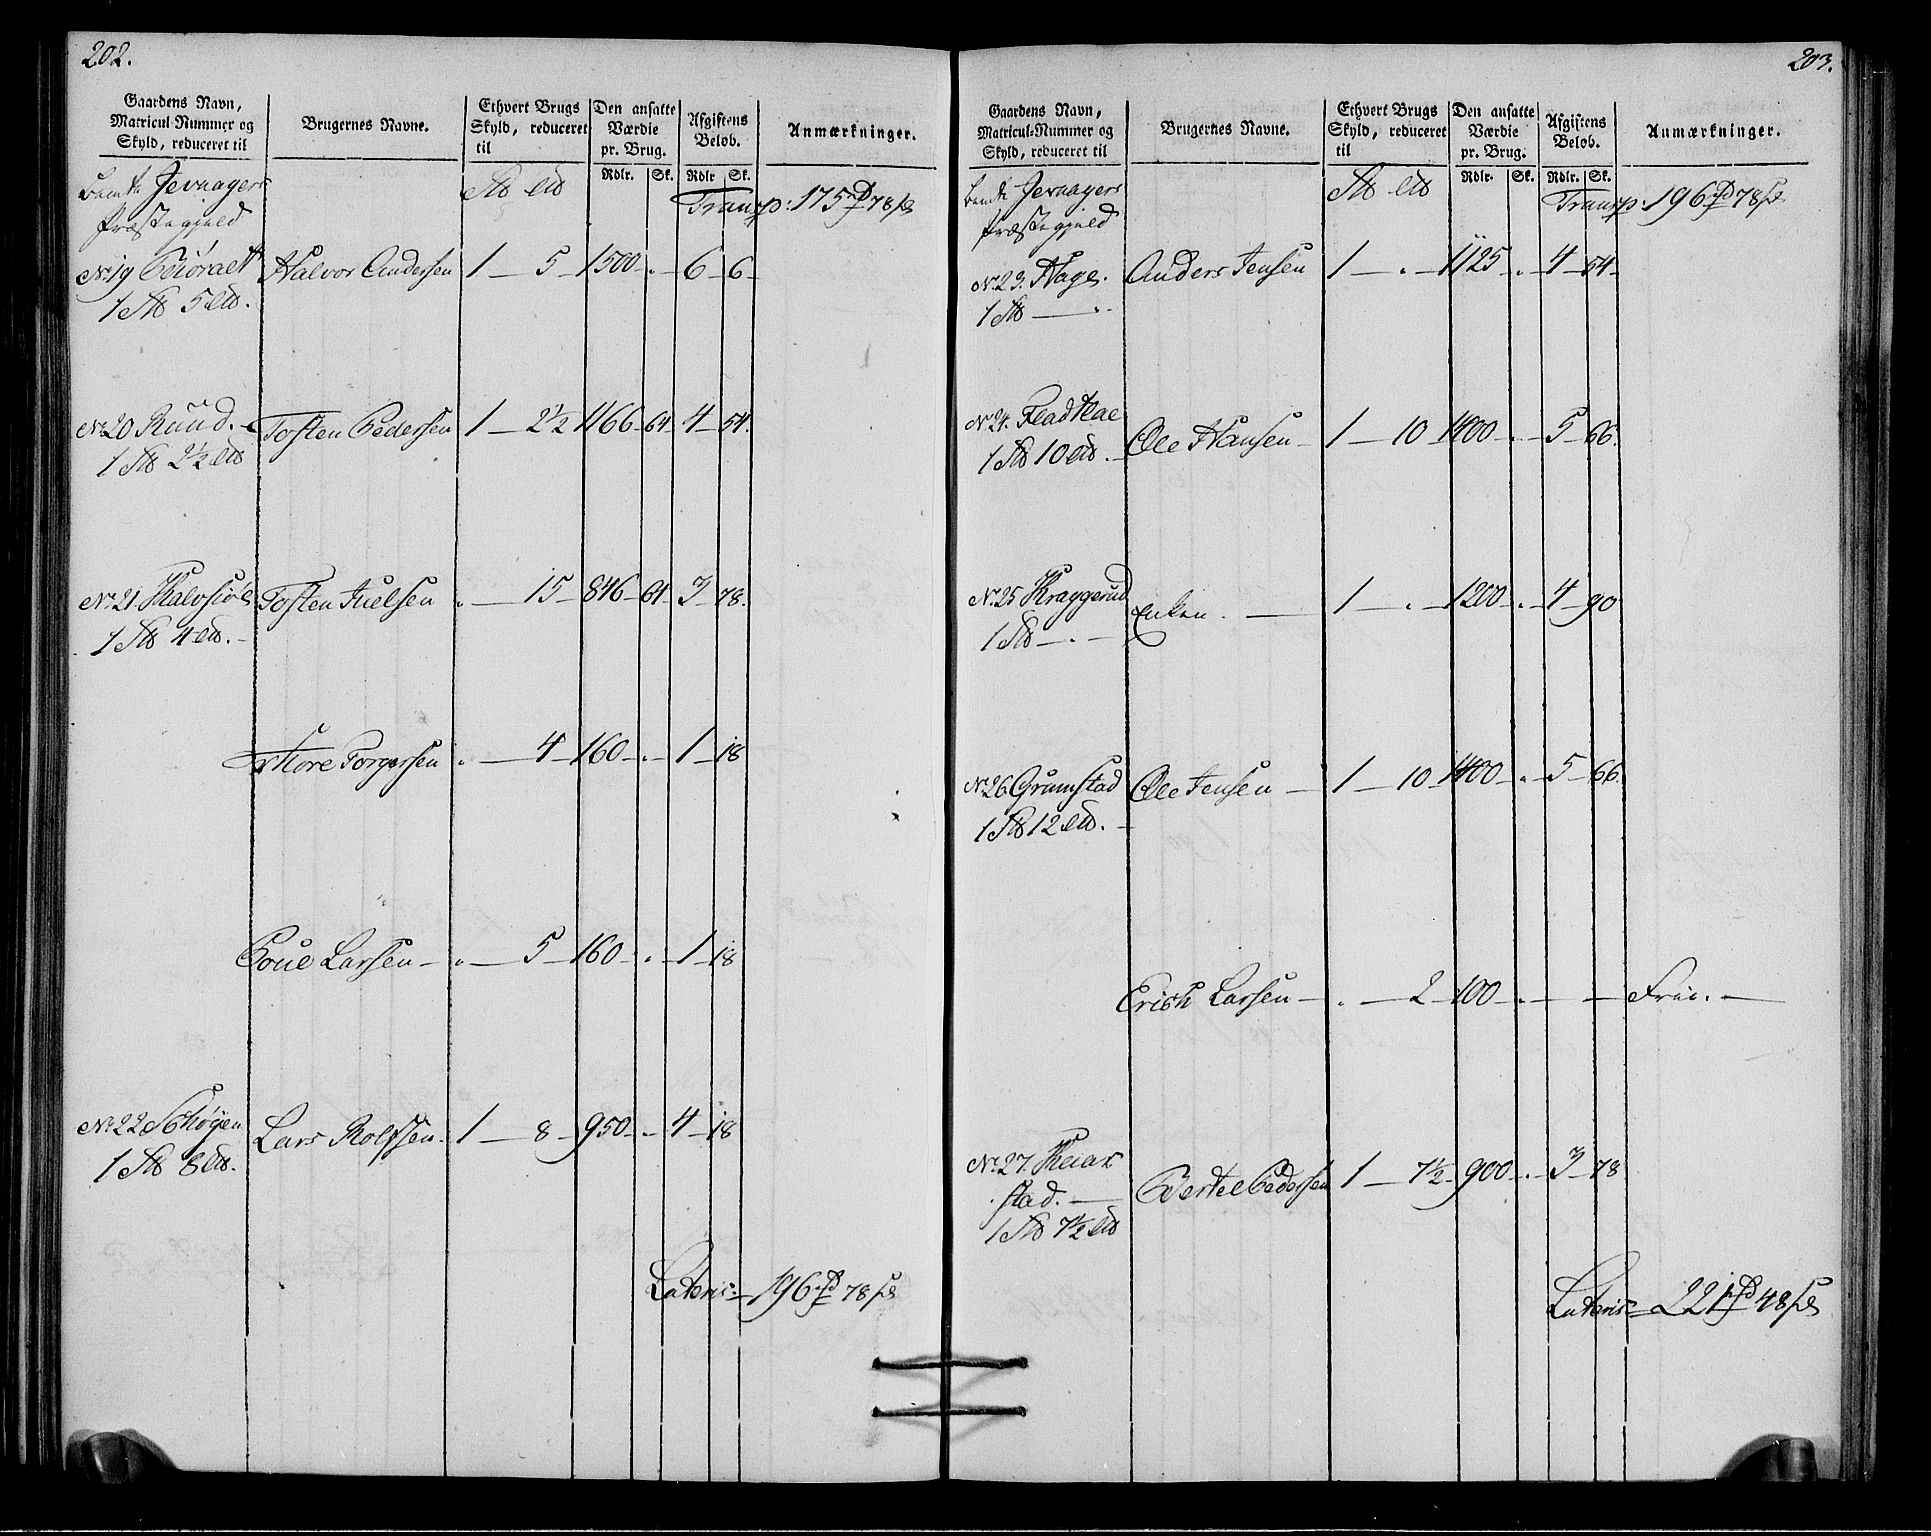 202.
Gaardens Navn,
Matricul-Nummer og
Skyld, reduceret til
Brugernes Navne.
Ethvert Brugs
Skyld, reduceret
til
Den ansatte
Værdie
pr. Brug.
Afgiftens
Beløb.
Anmærkninger.
Rdlr. Sk. Rdlr Sk.
Jevnagers
Præstegjeld
Transp: 175 78 s
No 19
1 5
Halvor Andersen 1 — 5 — 1500 — . — 6 — 6 —
No 20 Ruud.
1 2½
Tosten Pedersen 1 — 2½ 1166 — 64 — 4 — 54.
No 21
1 4
Tosten Juelsen . — 15 — 846 — 64 — 3 — 78.
Tore Torgersen . — 4 — 160 — . — 1 — 18
Poul Larsen — . — 5 — 160 — . — 1 — 18
No 22
1 8
Lars Rolfsen 1 — 8 — 950 — . — 4 — 18
Lateris — 196 78 s
203.
Gaardens Navn,
Matricul-Nummer og
Skyld, reduceret til
Brugernes Navne.
Ethvert Brugs
Skyld, reduceret
til
Den ansatte
Værdie
pr. Brug.
Afgiftens
Beløb.
Anmærkninger.
Rdlr. Sk. Rdlr. Sk.
Jevnagers
Præstegjeld
Transp: 196 78 s
No 23. Hage.
1 — .
Anders Jensen 1 — . — 1125 — . — 4 — 54 —
No 24.
1 10
Ole Hansen — 1 — 10 1400 — . — 5 — 66.
No 25 Kraggerud
1 — . —
Enken. — 1 — . — 1200 — . — 4 — 90
No 26 Grumstad
1 12
Ole Jensen — 1 — 10 — 1400 — . — 5 — 66.
Erich Larsen — . — 2 — 100 — . — — Frie. —
No 27.
stad. —
1 7½
Bertel Pedersen 1 — 7½ — 900 — . — 3 — 78
Lateris — 221 48 s